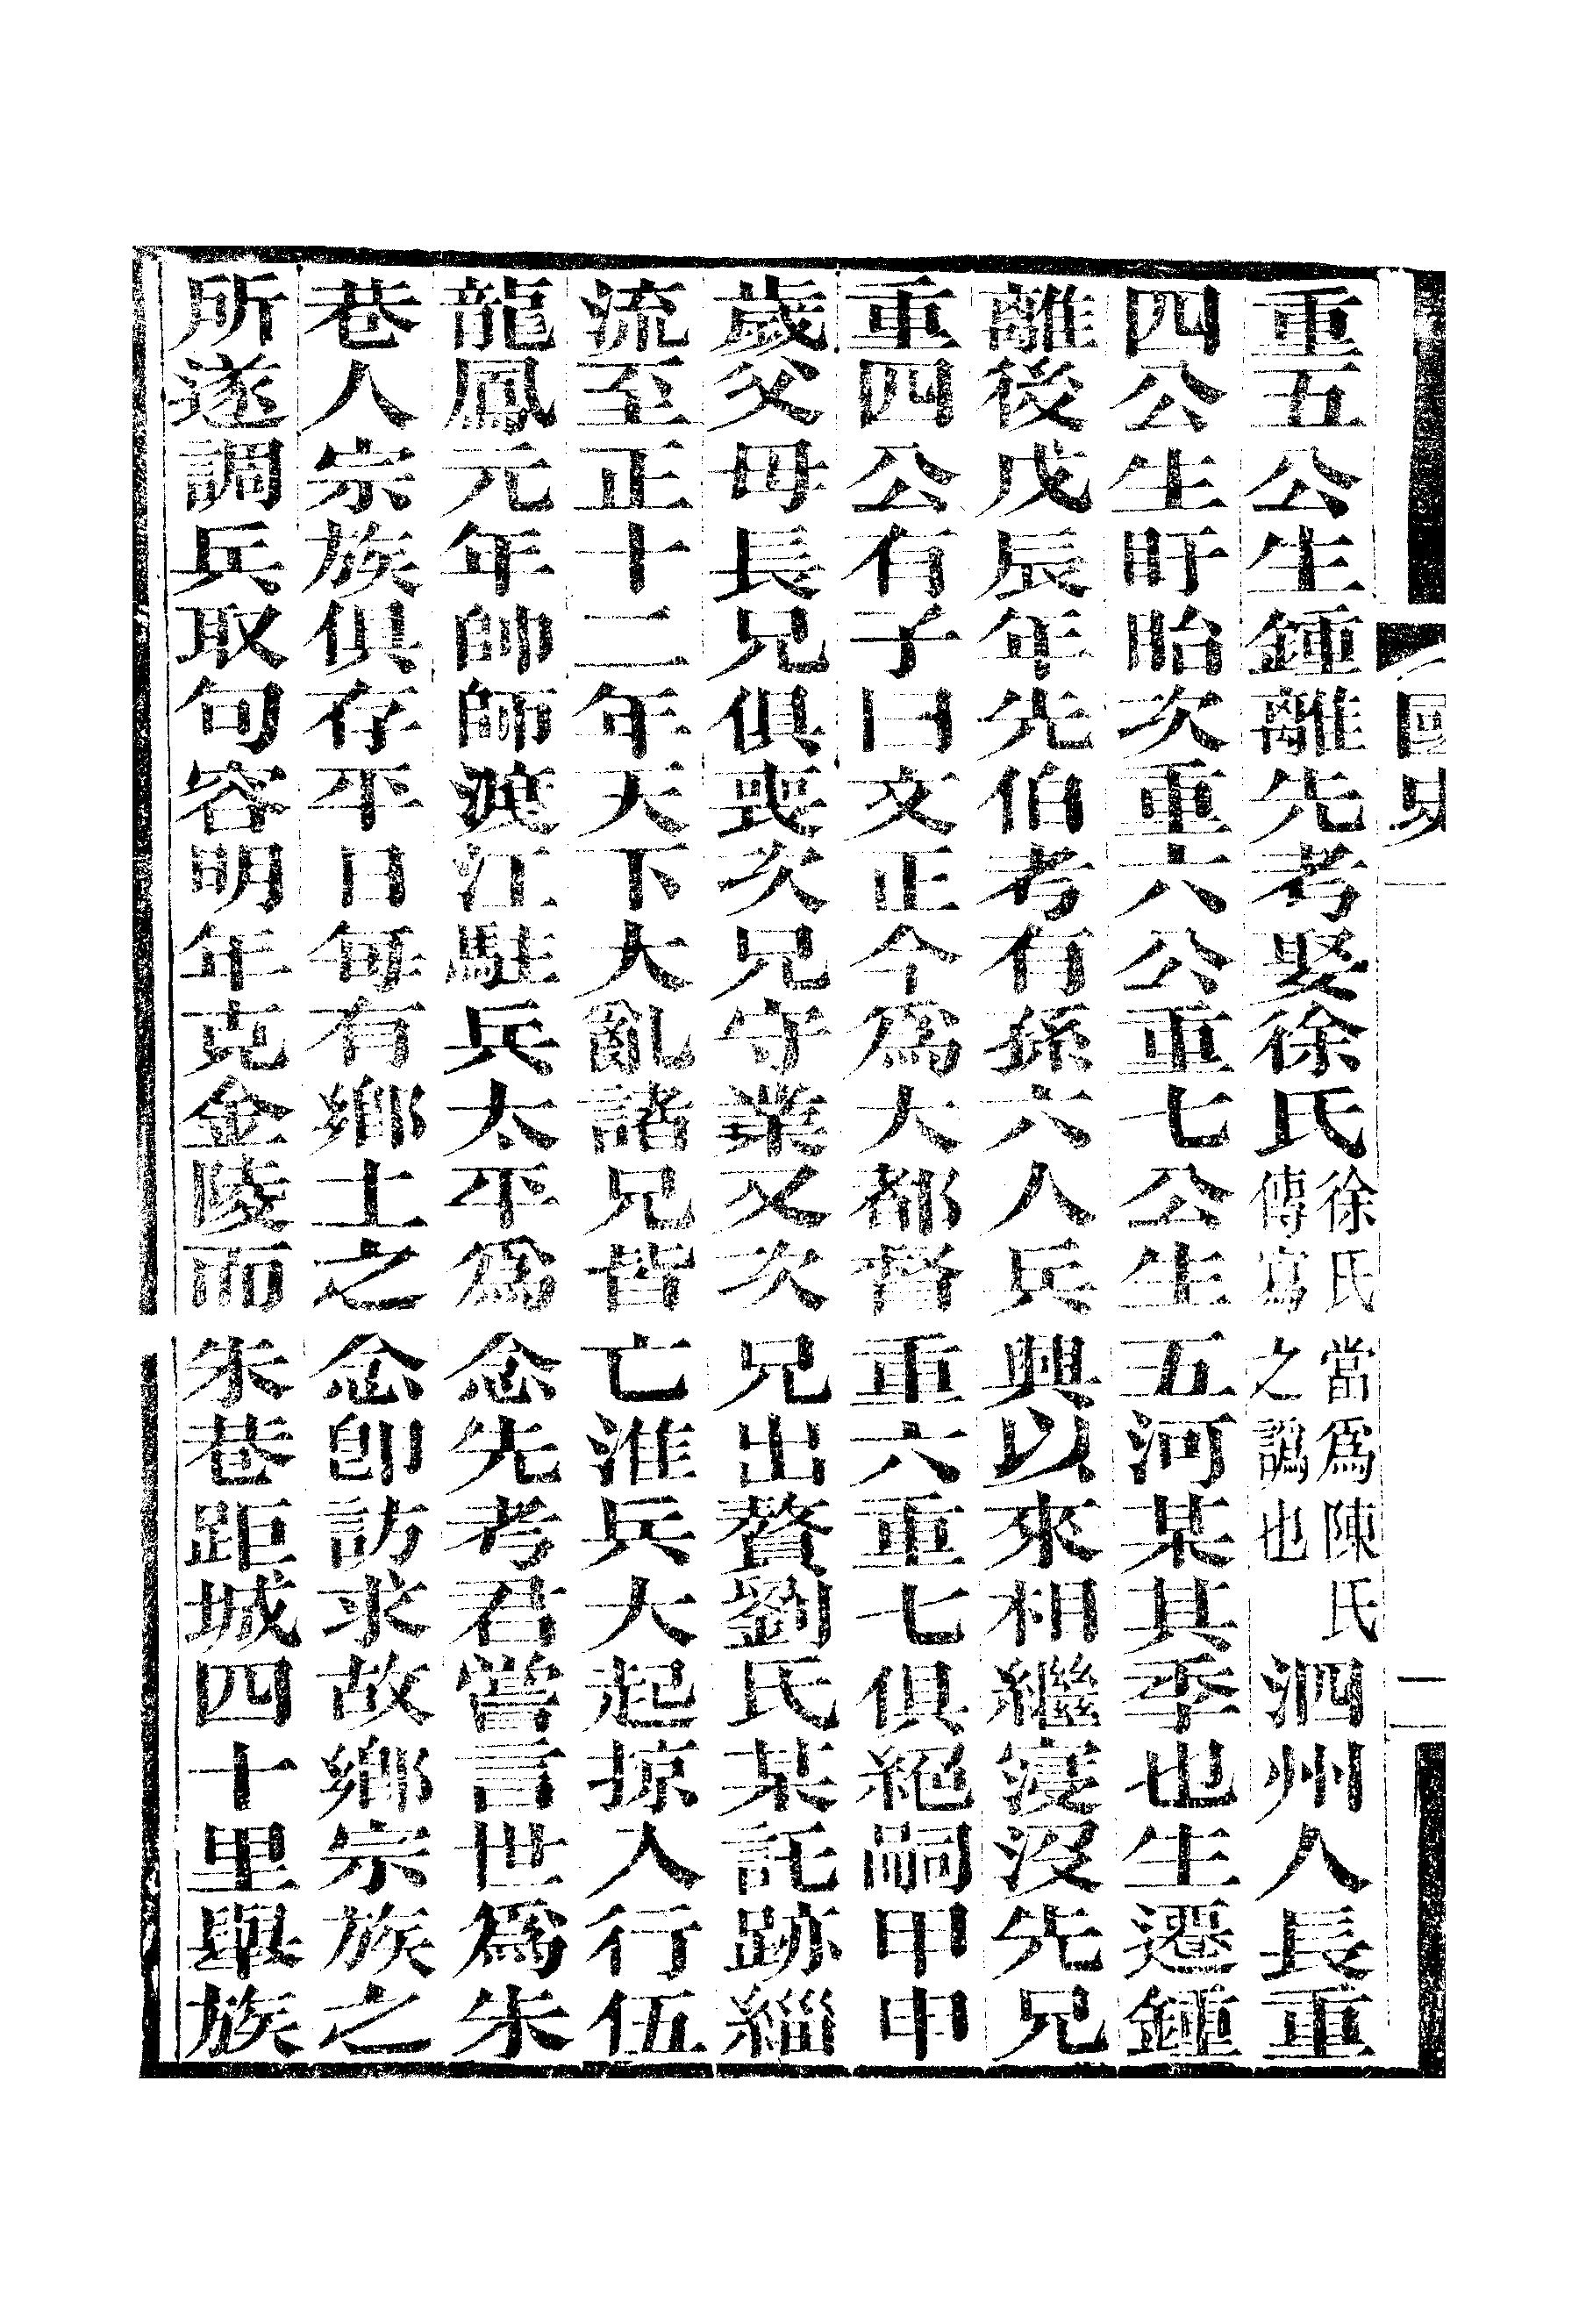 國史一 二
重五公生鍾離先考娶徐氏徐氏當爲陳氏傳寫之譌也泗州人長重
四公生盱眙次重六公重七公生五河某其季也生遷鍾
離後戊辰年先伯考有孫六人兵興以來相繼寖沒先兄
重四公有子曰文正今爲大都督重六重七俱絕嗣甲申
歲父母長兄俱喪次兄守業又次兄出贅劉氏某託跡緇
流至正十二年天下大亂諸兄皆亡淮兵大起掠人行伍
龍鳳元年帥師渡江駐兵太平爲念先考君嘗言世爲朱
巷人宗族俱存平日每有鄉土之念卽訪求故鄉宗族之
所遂調兵取句容明年克金陵而朱巷距城四十里舉族